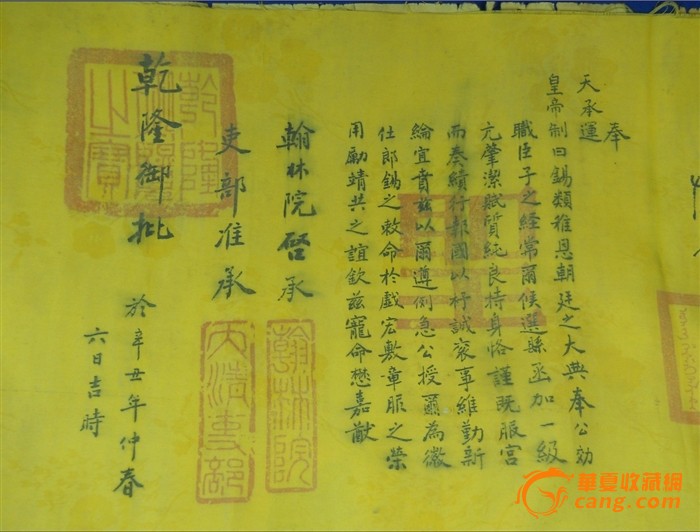 奉
天承運
皇帝制曰錫類推恩朝廷之大典奉公効
職臣子之經常爾候選縣丞加一級
元肇潔賦質純良持身恪謹既服官
而奏績行報國以抒誠褒事維勤新
綸宜賁茲以爾遵例急公授爾為徽
仕郎錫之敕命於戲宏敷章服之榮
用勵靖共之誼欽茲寵命懋嘉猷
翰林院啓承
翰林院
吏部准承
天浩吏部
乾隆御批
乾隆
之寶
於辛丑年仲春
六日吉時
華夏收藏網
cang.com